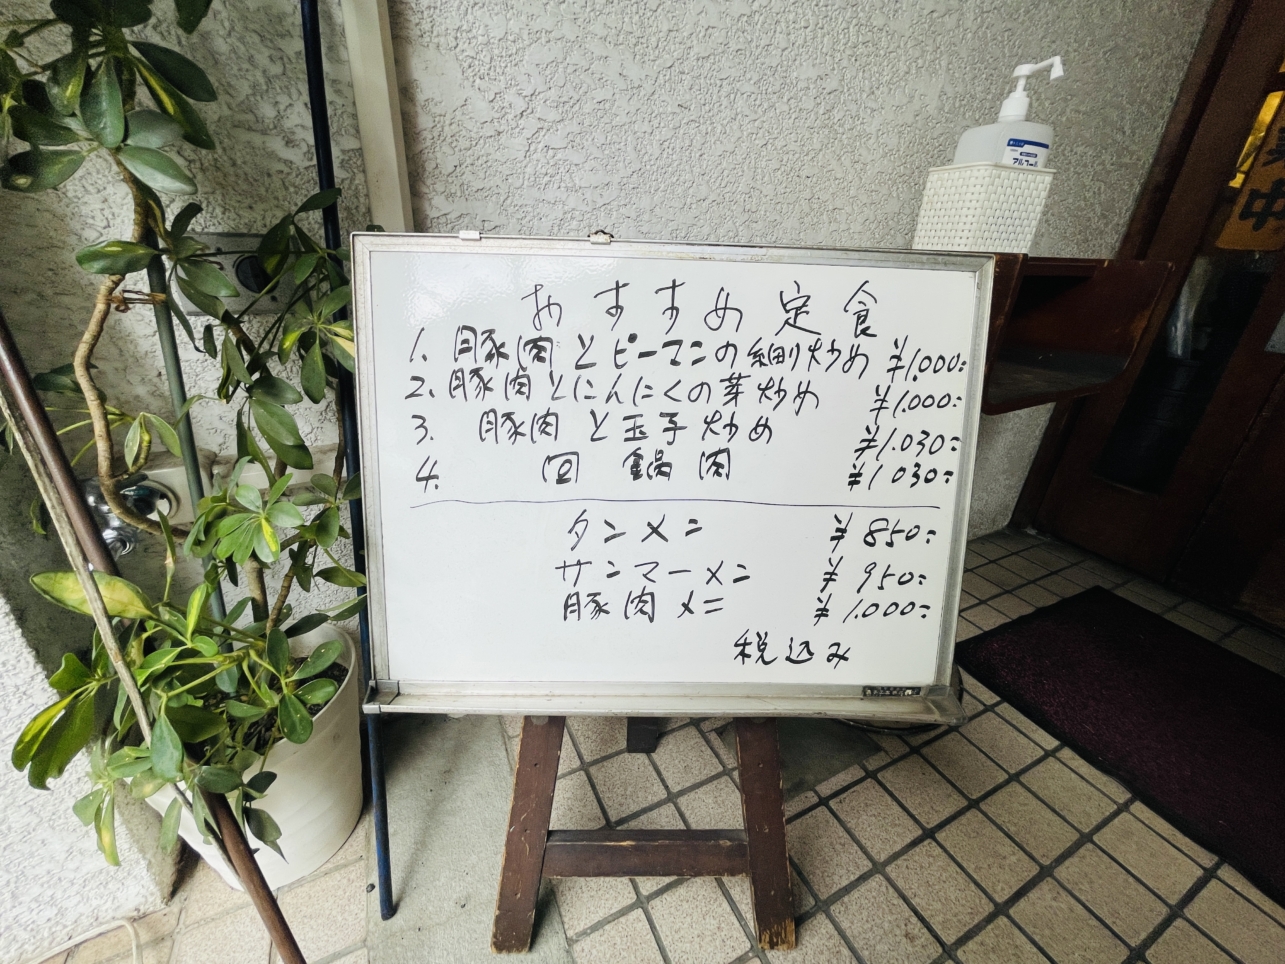 おすすめ定食
1. 豚肉とピーマンの細切炒め ¥1.000-
2. 豚肉とにんにくの芽炒め ¥1.000-
3. 豚肉と玉子炒め ¥1.030-
4. 回鍋肉 ¥1030-
タンメン ¥850-
サンマーメン ¥950-
豚肉メン ¥1.000-
税込み
アルコール
中